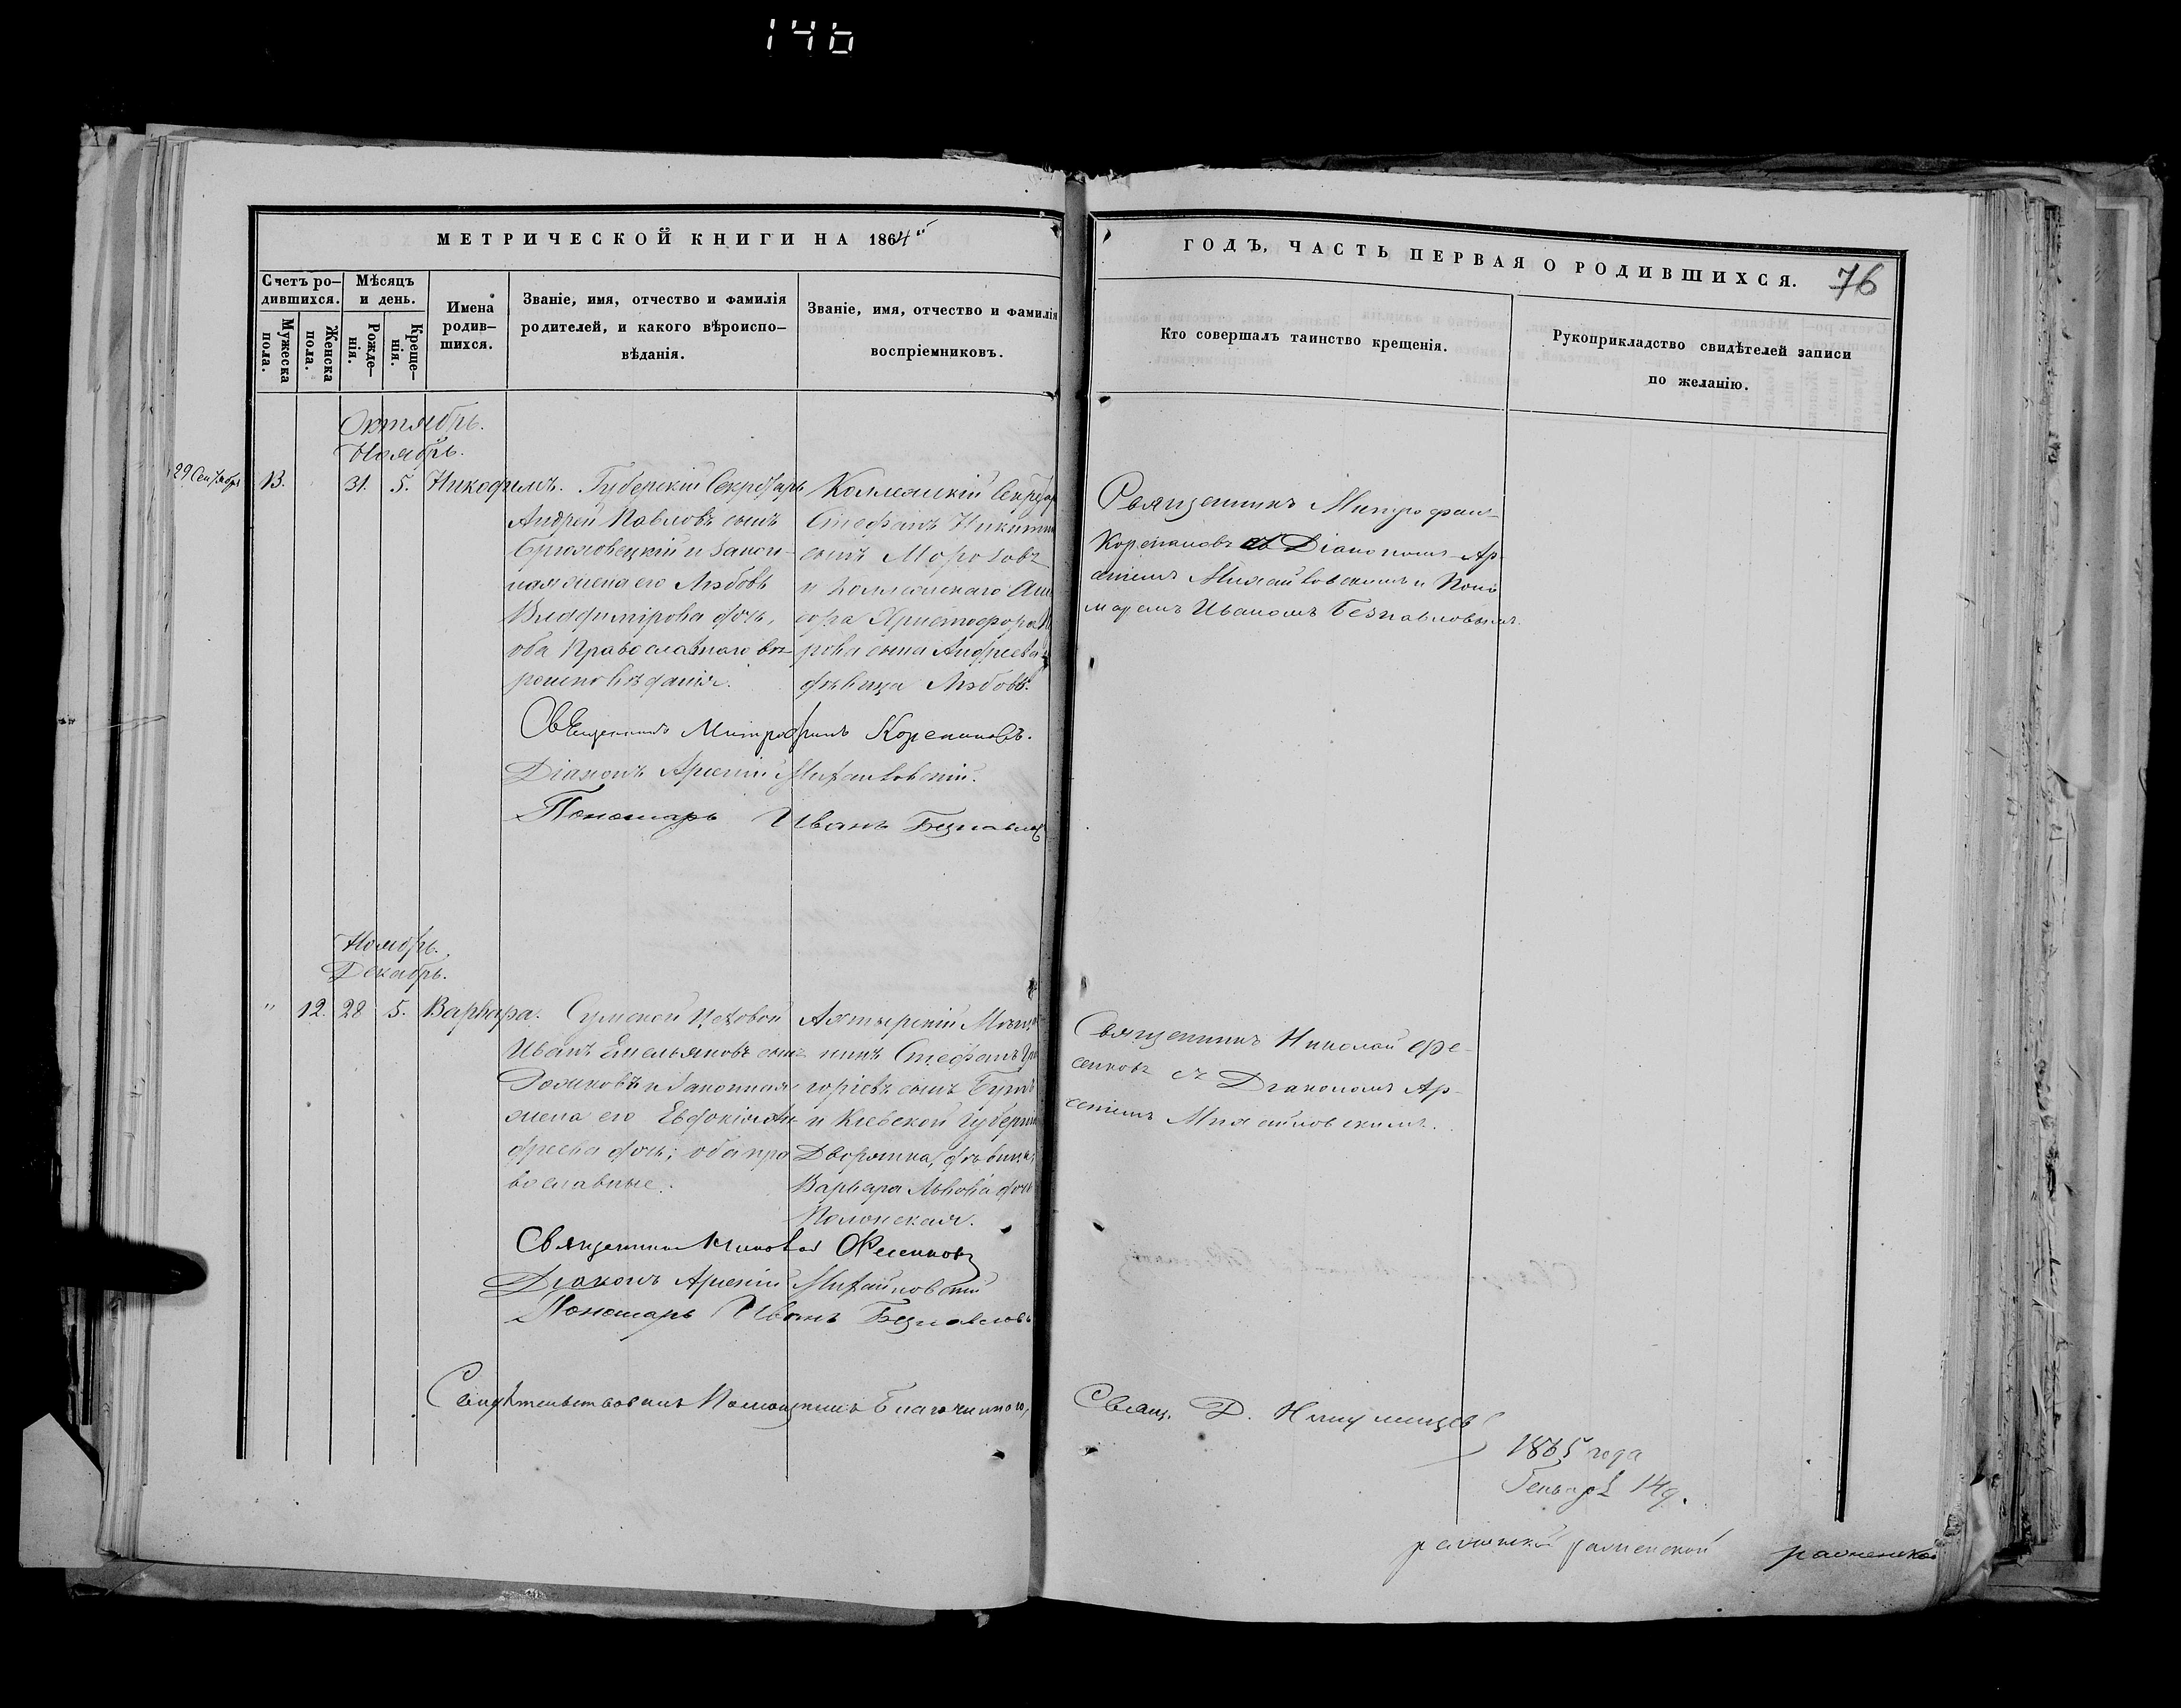 146
МЕТРИЧЕСКОЙ КНИГИ НА 1864й
ГОДЪ, ЧАСТЬ ПЕРВАЯ О РОДИВШИХСЯ.
76
Счетъ ро–
дившихся.
Мужеска
пола.
Женска
пола.
Мѣсяцъ
и день.
Рожде–
нія.
Креще–
нія.
Имена
родив–
шихся.
Званіе, имя, отчество и фамилія
родителей, и какого вѣроиспо–
вѣданія.
Званіе, имя, отчество и фамилія
воспріемниковъ.
Кто совершалъ таинство крещенія.
Рукоприкладство свидѣтелей записи
по желанію.
Октябрь.
Ноябрь.
29 Сентября
13.
31.
5.
Никодимъ.
Губернскій Секретарь
Андрей Павловъ сынъ
Брюховецкій и закон-
ная жена его Любовь
Владимірова дочь,
оба Православнаго вѣ-
роисповѣданія.
Коллежскій Секретар
Стефанъ Никитин
сынъ Морозовъ
и Коллежскаго Асе
сора Христофора
рова сына Андреева
дѣвица Любовь.
Священникъ Митрофан
Корейановъ съ Діакономъ Ар-
сеніемъ Михайловскимъ и Поно
маремъ Иваномъ Безпавловымъ.
Священникъ Митрофанъ
Діаконъ Арсеній Михайловскій.
Пономарь Иванъ Безпавлов
Ноябрь.
Декабрь.
"
12.
28
5.
Варвара.
Сумской Цеховой
Иванъ Емельяновъ сынъ
и законная
жена его Евдокія Ан-
дреева дочь; оба пра
вославные.
Ахтырскій Мѣща
нинъ Стефанъ Гри
горіевъ сынъ
и Кіевской Губерніи
Дворянка, дѣвица,
Варвара Львова дочь
Полонская.
Священникъ Николай Фе-
сенковъ съ Діакономъ Ар-
сеніемъ Михайловскимъ.
Священникъ Николай Фесенковъ
Діаконъ Арсеній Михайловскій
Пономарь Иванъ Безпавловъ
Свидѣтельствовалъ Помощникъ Благочиннаго,
Свящ. Д.
1865 года
Генваря 14 д.